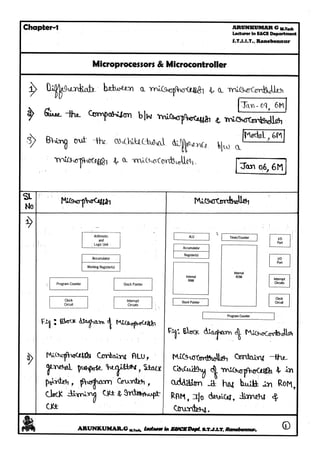 Chapter-1
ARUNKUMAR G M.Tech
Lecturer in E&CE Department
S.T.J.I.T., Ranebennur
Microprocessors & Microcontroller
1) Differentiate between a microprocessor & a microcontroller
Jan-09, 6M
2) Give the comparision b/w microprocessor & microcontroller
Model, 6M
3) Bring out the architectural difference b/w a
microprocessor & a microcontroller.
Jan 06, 6M
Sl No
Microprocessor
Microcontroller
1)
Arithmetic and Logic Unit
Accumulator
Working Register(s)
Program Counter
Stack Pointer
Clock Circuit
Interrupt Circuits
Fig : Block diagram of Microprocessor
ALU
Timer/Counter
I/O Port
Accumulator
Register(s)
I/O Port
Internal RAM
Internal ROM
Interrupt Circuits
Stack Pointer
Clock Circuit
Program Counter
Fig: Block diagram of Microcontroller
2)
Microprocessor contains ALU,
general purpose registers, stack
pointer, program counter,
clock timing ckt & interrupt
ckt
Microcontroller contains the
circuitry of microprocessor & in
addition it has built in ROM,
RAM, I/o devices, timers &
counters.
ARUNKUMAR.G M.Tech, Lecturer in E&CE Dept. S.T.J.I.T, Ranebennur.
1